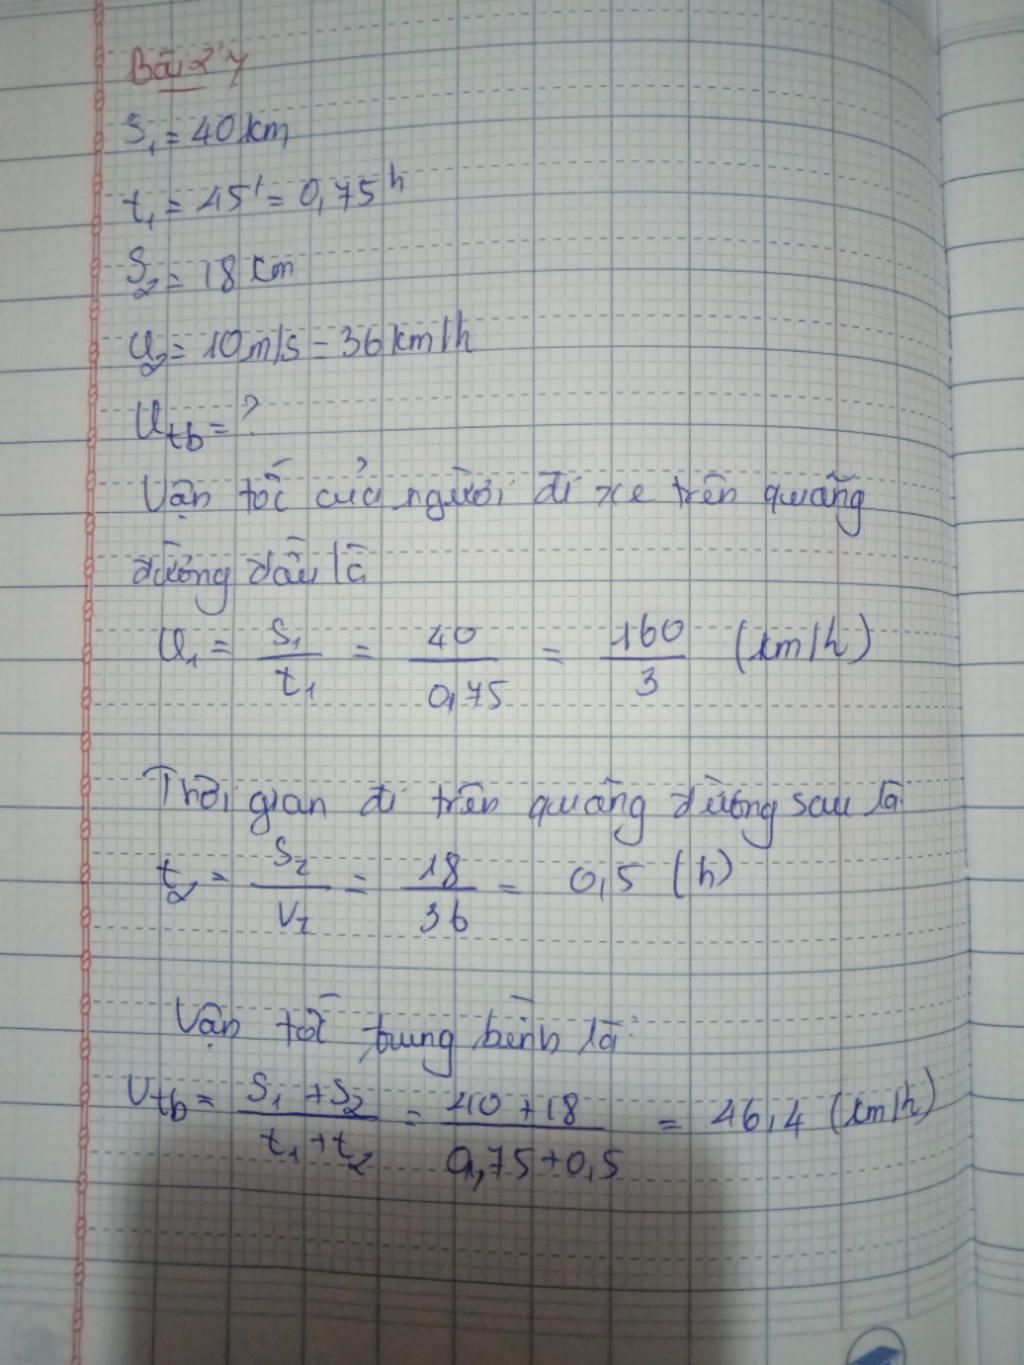 Bài 2 7
S₁ = 40 km
t₁ = 45' = 0,75h
S₂ = 18 km
v₂ = 10 m/s = 36 km/h
vtb = ?
Vận tốc của người đi xe trên quãng
đường đầu là
v₁ = S₁/t₁ = 40/0,75 = 160/3 (km/h)
Thời gian đi trên quãng đường sau là
t₂ = S₂/V₂ = 18/36 = 0,5 (h)
Vận tốc trung bình là
Vtb = (S₁ + S₂)/(t₁ + t₂) = (40 + 18)/(0,75 + 0,5) = 46,4 (km/h)